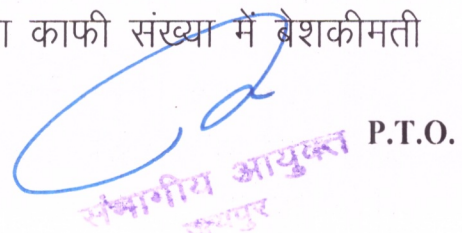 काफी संख्या में बेशकीमती
P.T.O.
संभागीय आयुक्त